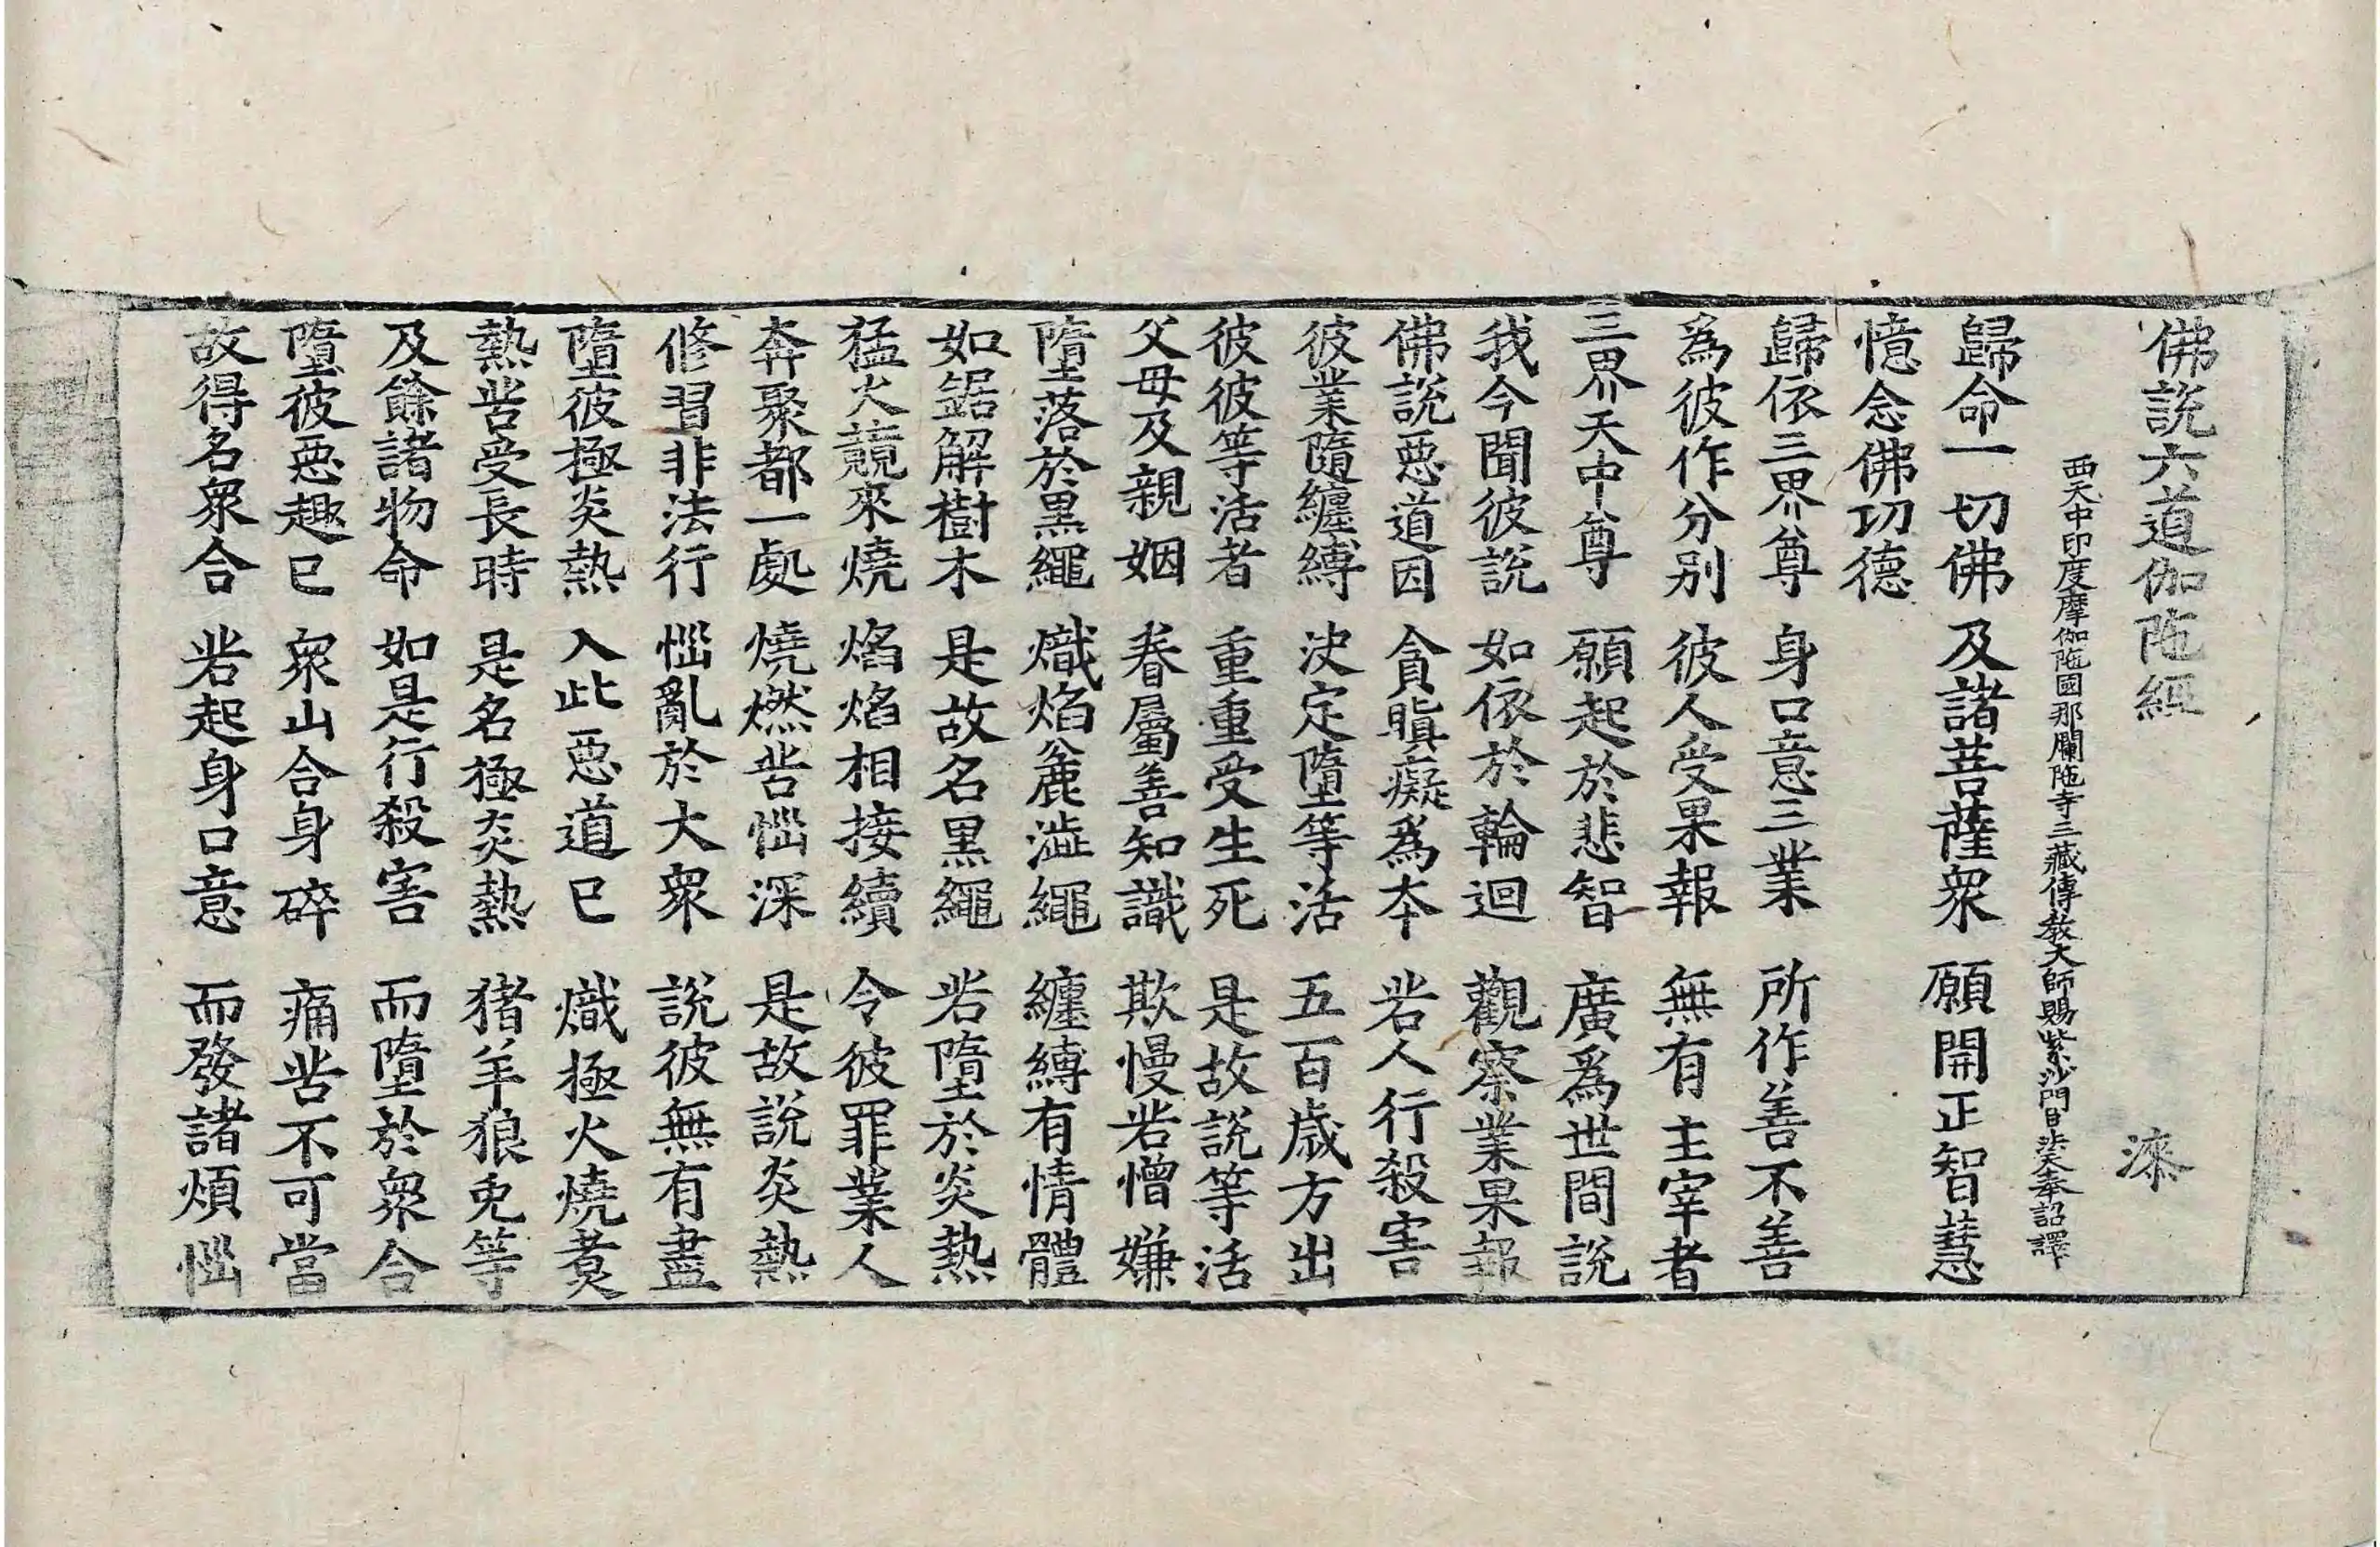 佛說六道伽陁經 漆
西天中印度摩伽陁國那爛陁寺三藏傳教大師賜紫沙門臣法天奉詔譯
歸命一切佛 及諸菩薩衆 願開正智慧
憶念佛功德
歸依三界尊 身口意三業 所作善不善
爲彼作分别 彼人受果報 無有主宰者
三界天中尊 願起於悲智 廣爲世間說
我今聞彼說 如依於輪迴 觀察業果報
佛說惡道因 貪瞋癡爲本 若人行殺害
彼業隨纏縛 决定墮等活 五百歲方出
彼彼等活者 重重受生死 是故說等活
父母及親姻 眷屬善知識 欺慢若憎嫌
墮落於黒繩 熾焰麁澁繩 纏縛有情體
如鋸解樹木 是故名黒繩 若墮於炎熱
猛火競來燒 焰焰相接續 令彼罪業人
奔聚都一處 燒燃苦惱深 是故說炎熱
修習非法行 惱亂於大衆 說彼無有盡
墮彼極炎熱 入此惡道已 熾極火燒煑
熱苦受長時 是名極炎熱 猪羊狼兎等
及餘諸物命 如是行殺害 而墮於衆合
墮彼惡趣已 衆山合身碎 痛苦不可當
故得名衆合 若起身口意 而發諸煩惱